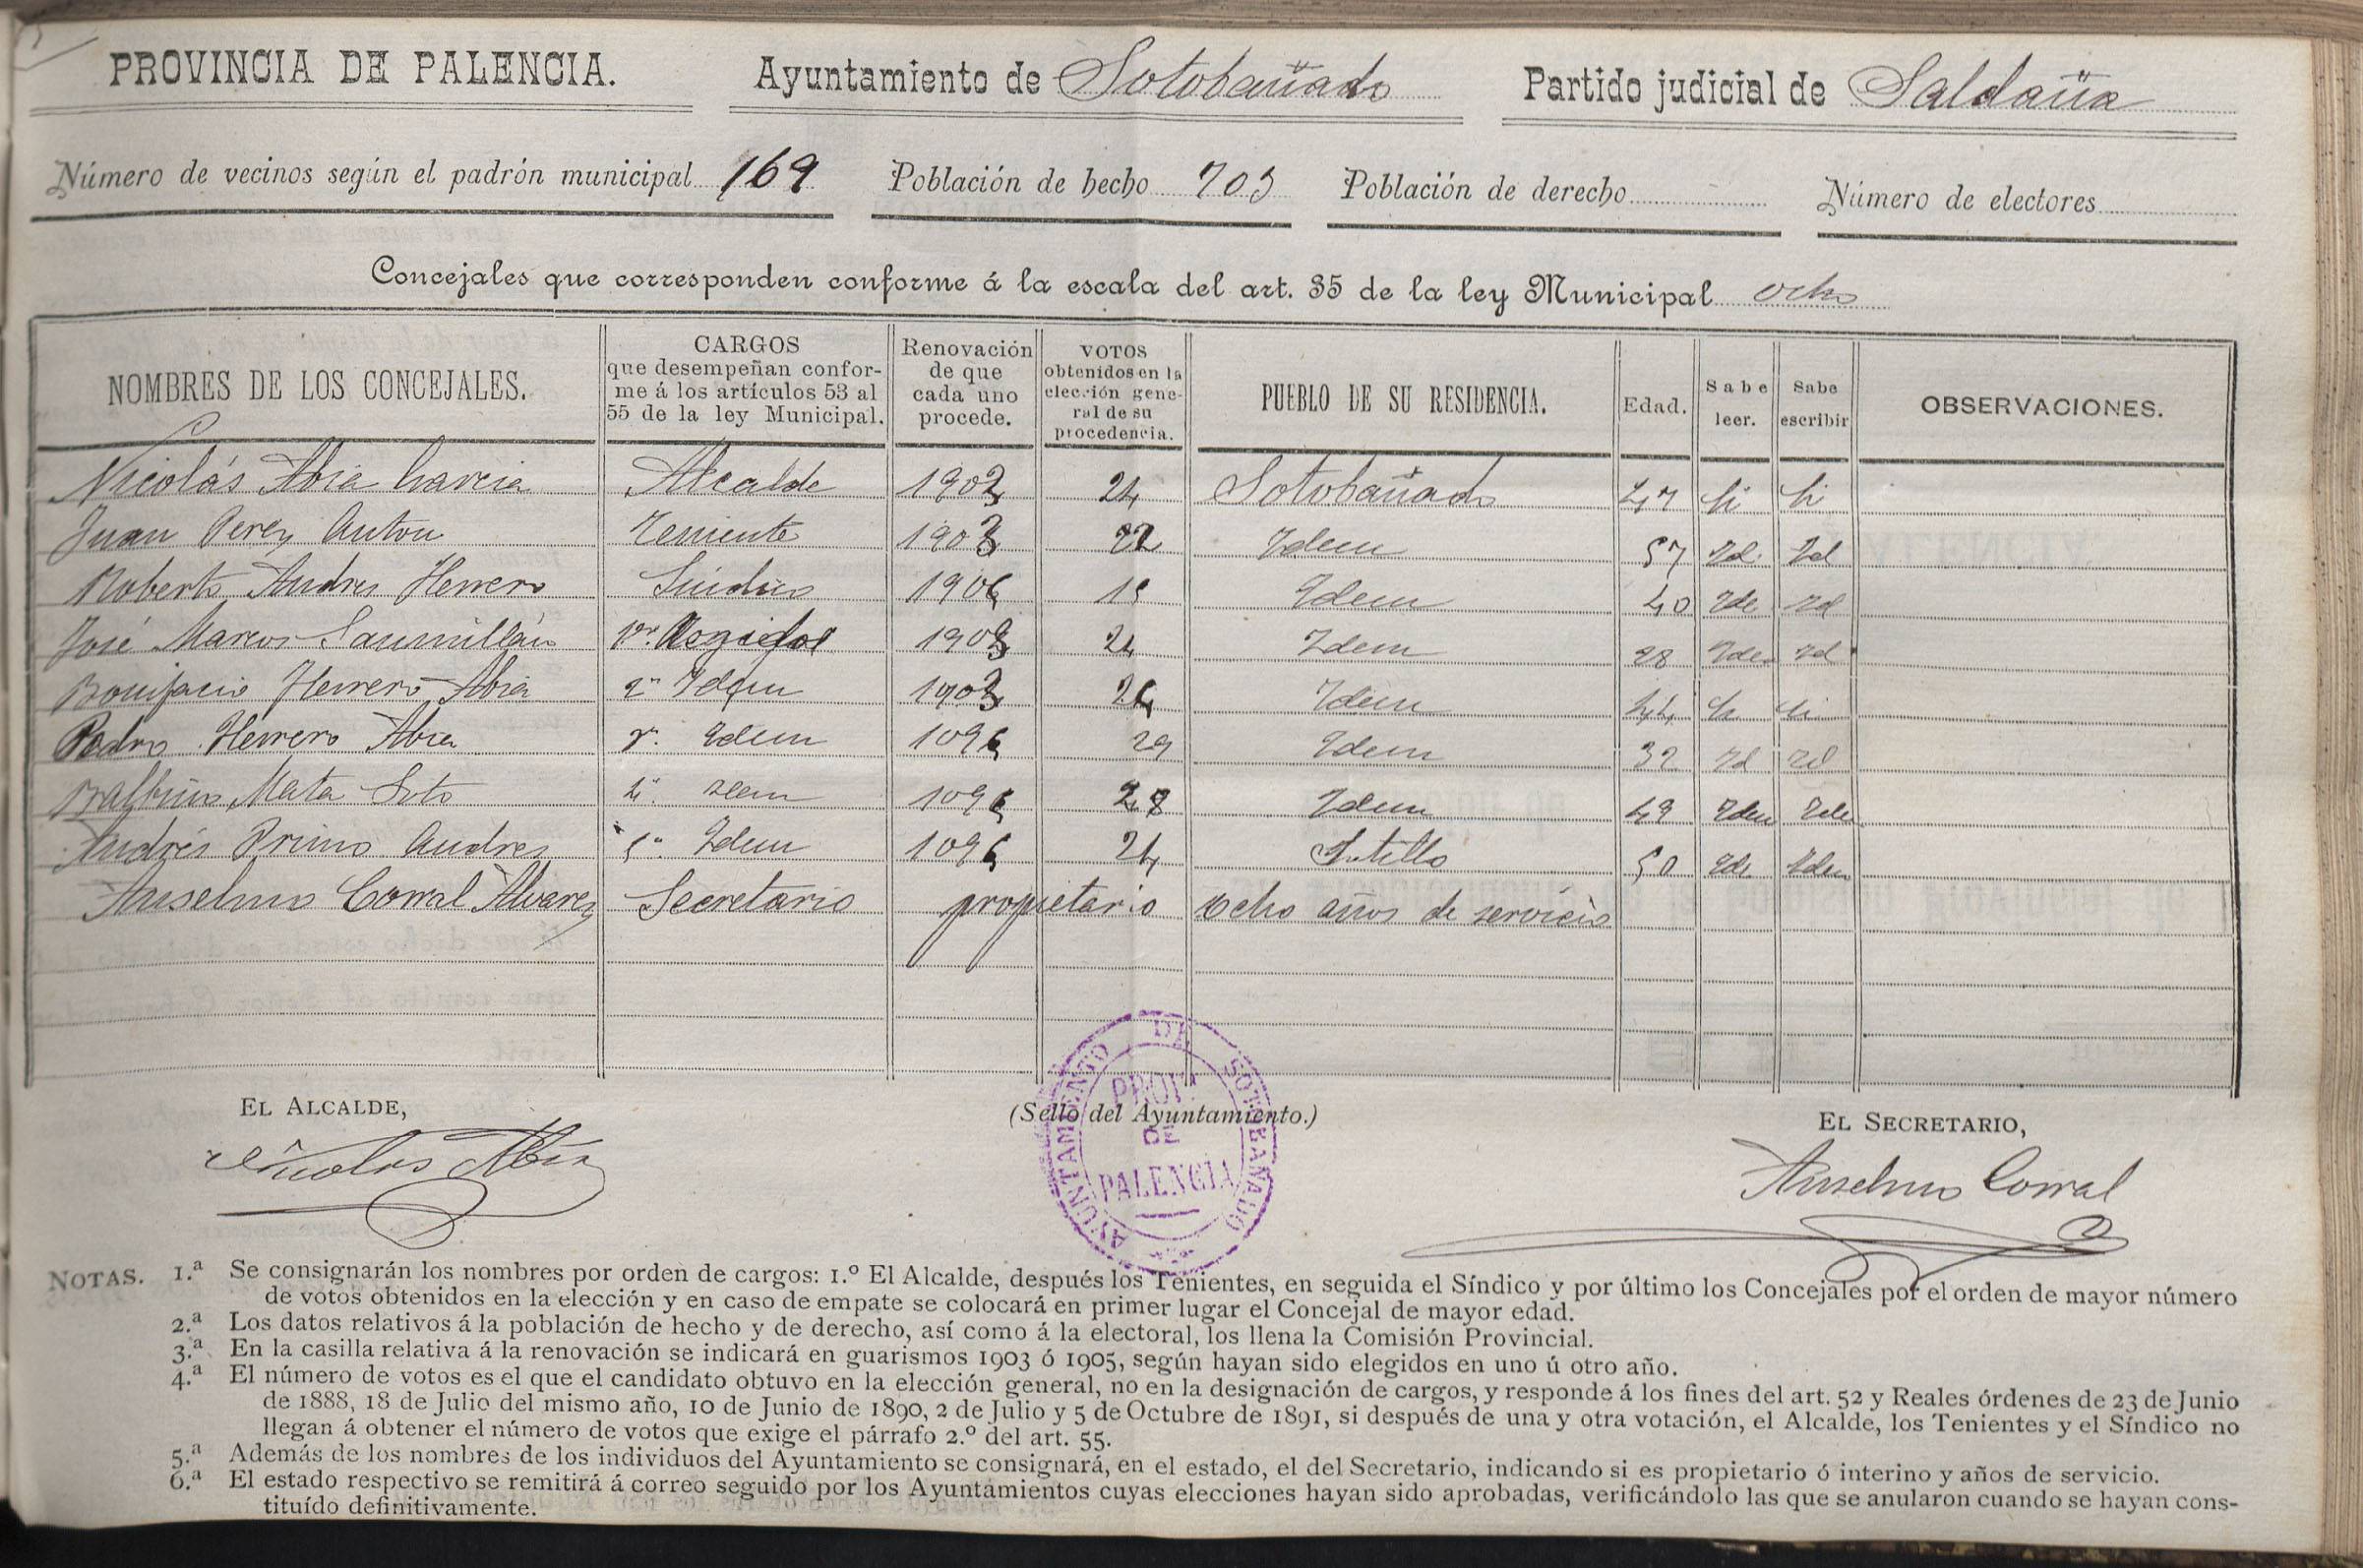 PROVINCIA DE PALENCIA. Ayuntamiento de Sotobañado Partido judicial de Saldaña
Número de vecinos según el padrón municipal 169 Población de hecho 703 Población de derecho Número de electores
Concejales que corresponden conforme á la escala del art. 35 de la ley Municipal ocho
NOMBRES DE LOS CONCEJALES. CARGOS que desempeñan conforme á los artículos 53 al 55 de la ley Municipal. Renovación de que cada uno procede. VOTOS obtenidos en la elección general de su procedencia. PUEBLO DE SU RESIDENCIA. Edad. Sabe leer. Sabe escribir OBSERVACIONES.
Nicolás Abia Garcia Alcalde 1903 24 Sotobañado 47 Si Si
Juan Perez Anton Teniente 1903 22 Idem 57 Id. Id
Roberto Andres Herrero Sindico 190 Idem 40 Ide Id
José Marcos Sanmillán 1er. Regidor 1903 24 Idem 28 Iden Id
Bonifacio Herrero Abia 2º Idem 1903 Idem 44 Si Si
Pedro Herrero Abia Idem 29 Idem 32 Id Id
Balbino Mata Soto 4º Idem 28 Idem 49 Iden Iden
Andrés Primo Andres 5º Idem 24 Sotillo 50 Ide Iden
Anselmo Corral Alvarez Secretario propietario Ocho años de servicio
EL ALCALDE, (Sello del Ayuntamiento.) EL SECRETARIO,
Nicolas Abia Anselmo Corral
AYUNTAMIENTO DE SOTOBAÑADO
PROV.ª
DE
PALENCIA
NOTAS. 1.ª Se consignarán los nombres por orden de cargos: 1.º El Alcalde, después los Tenientes, en seguida el Síndico y por último los Concejales por el orden de mayor número
de votos obtenidos en la elección y en caso de empate se colocará en primer lugar el Concejal de mayor edad.
2.ª Los datos relativos á la población de hecho y de derecho, así como á la electoral, los llena la Comisión Provincial.
3.ª En la casilla relativa á la renovación se indicará en guarismos 1903 ó 1905, según hayan sido elegidos en uno ú otro año.
4.ª El número de votos es el que el candidato obtuvo en la elección general, no en la designación de cargos, y responde á los fines del art. 52 y Reales órdenes de 23 de Junio
de 1888, 18 de Julio del mismo año, 10 de Junio de 1890, 2 de Julio y 5 de Octubre de 1891, si después de una y otra votación, el Alcalde, los Tenientes y el Síndico no
llegan á obtener el número de votos que exige el párrafo 2.º del art. 55.
5.ª Además de los nombres de los individuos del Ayuntamiento se consignará, en el estado, el del Secretario, indicando si es propietario ó interino y años de servicio.
6.ª El estado respectivo se remitirá á correo seguido por los Ayuntamientos cuyas elecciones hayan sido aprobadas, verificándolo las que se anularon cuando se hayan cons-
tituído definitivamente.